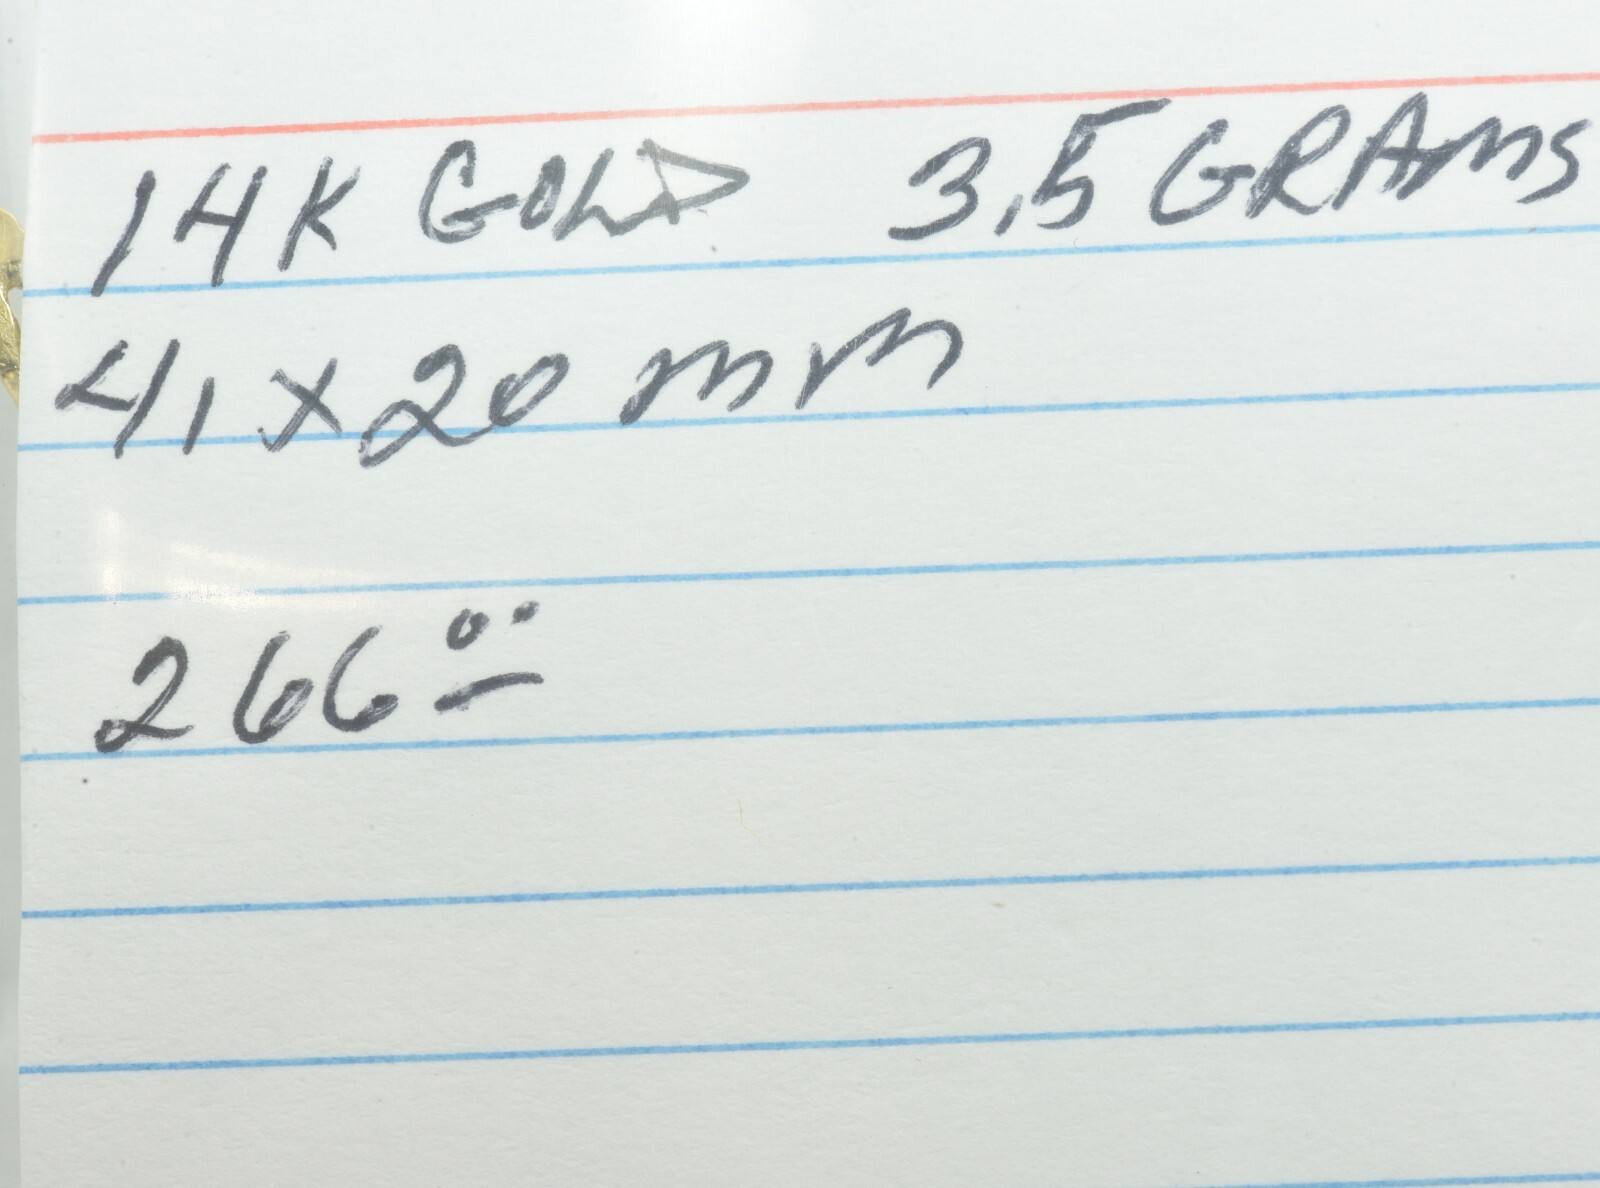 14K GOLD 3.5 GRAMS
41 X 20 mm
266.00